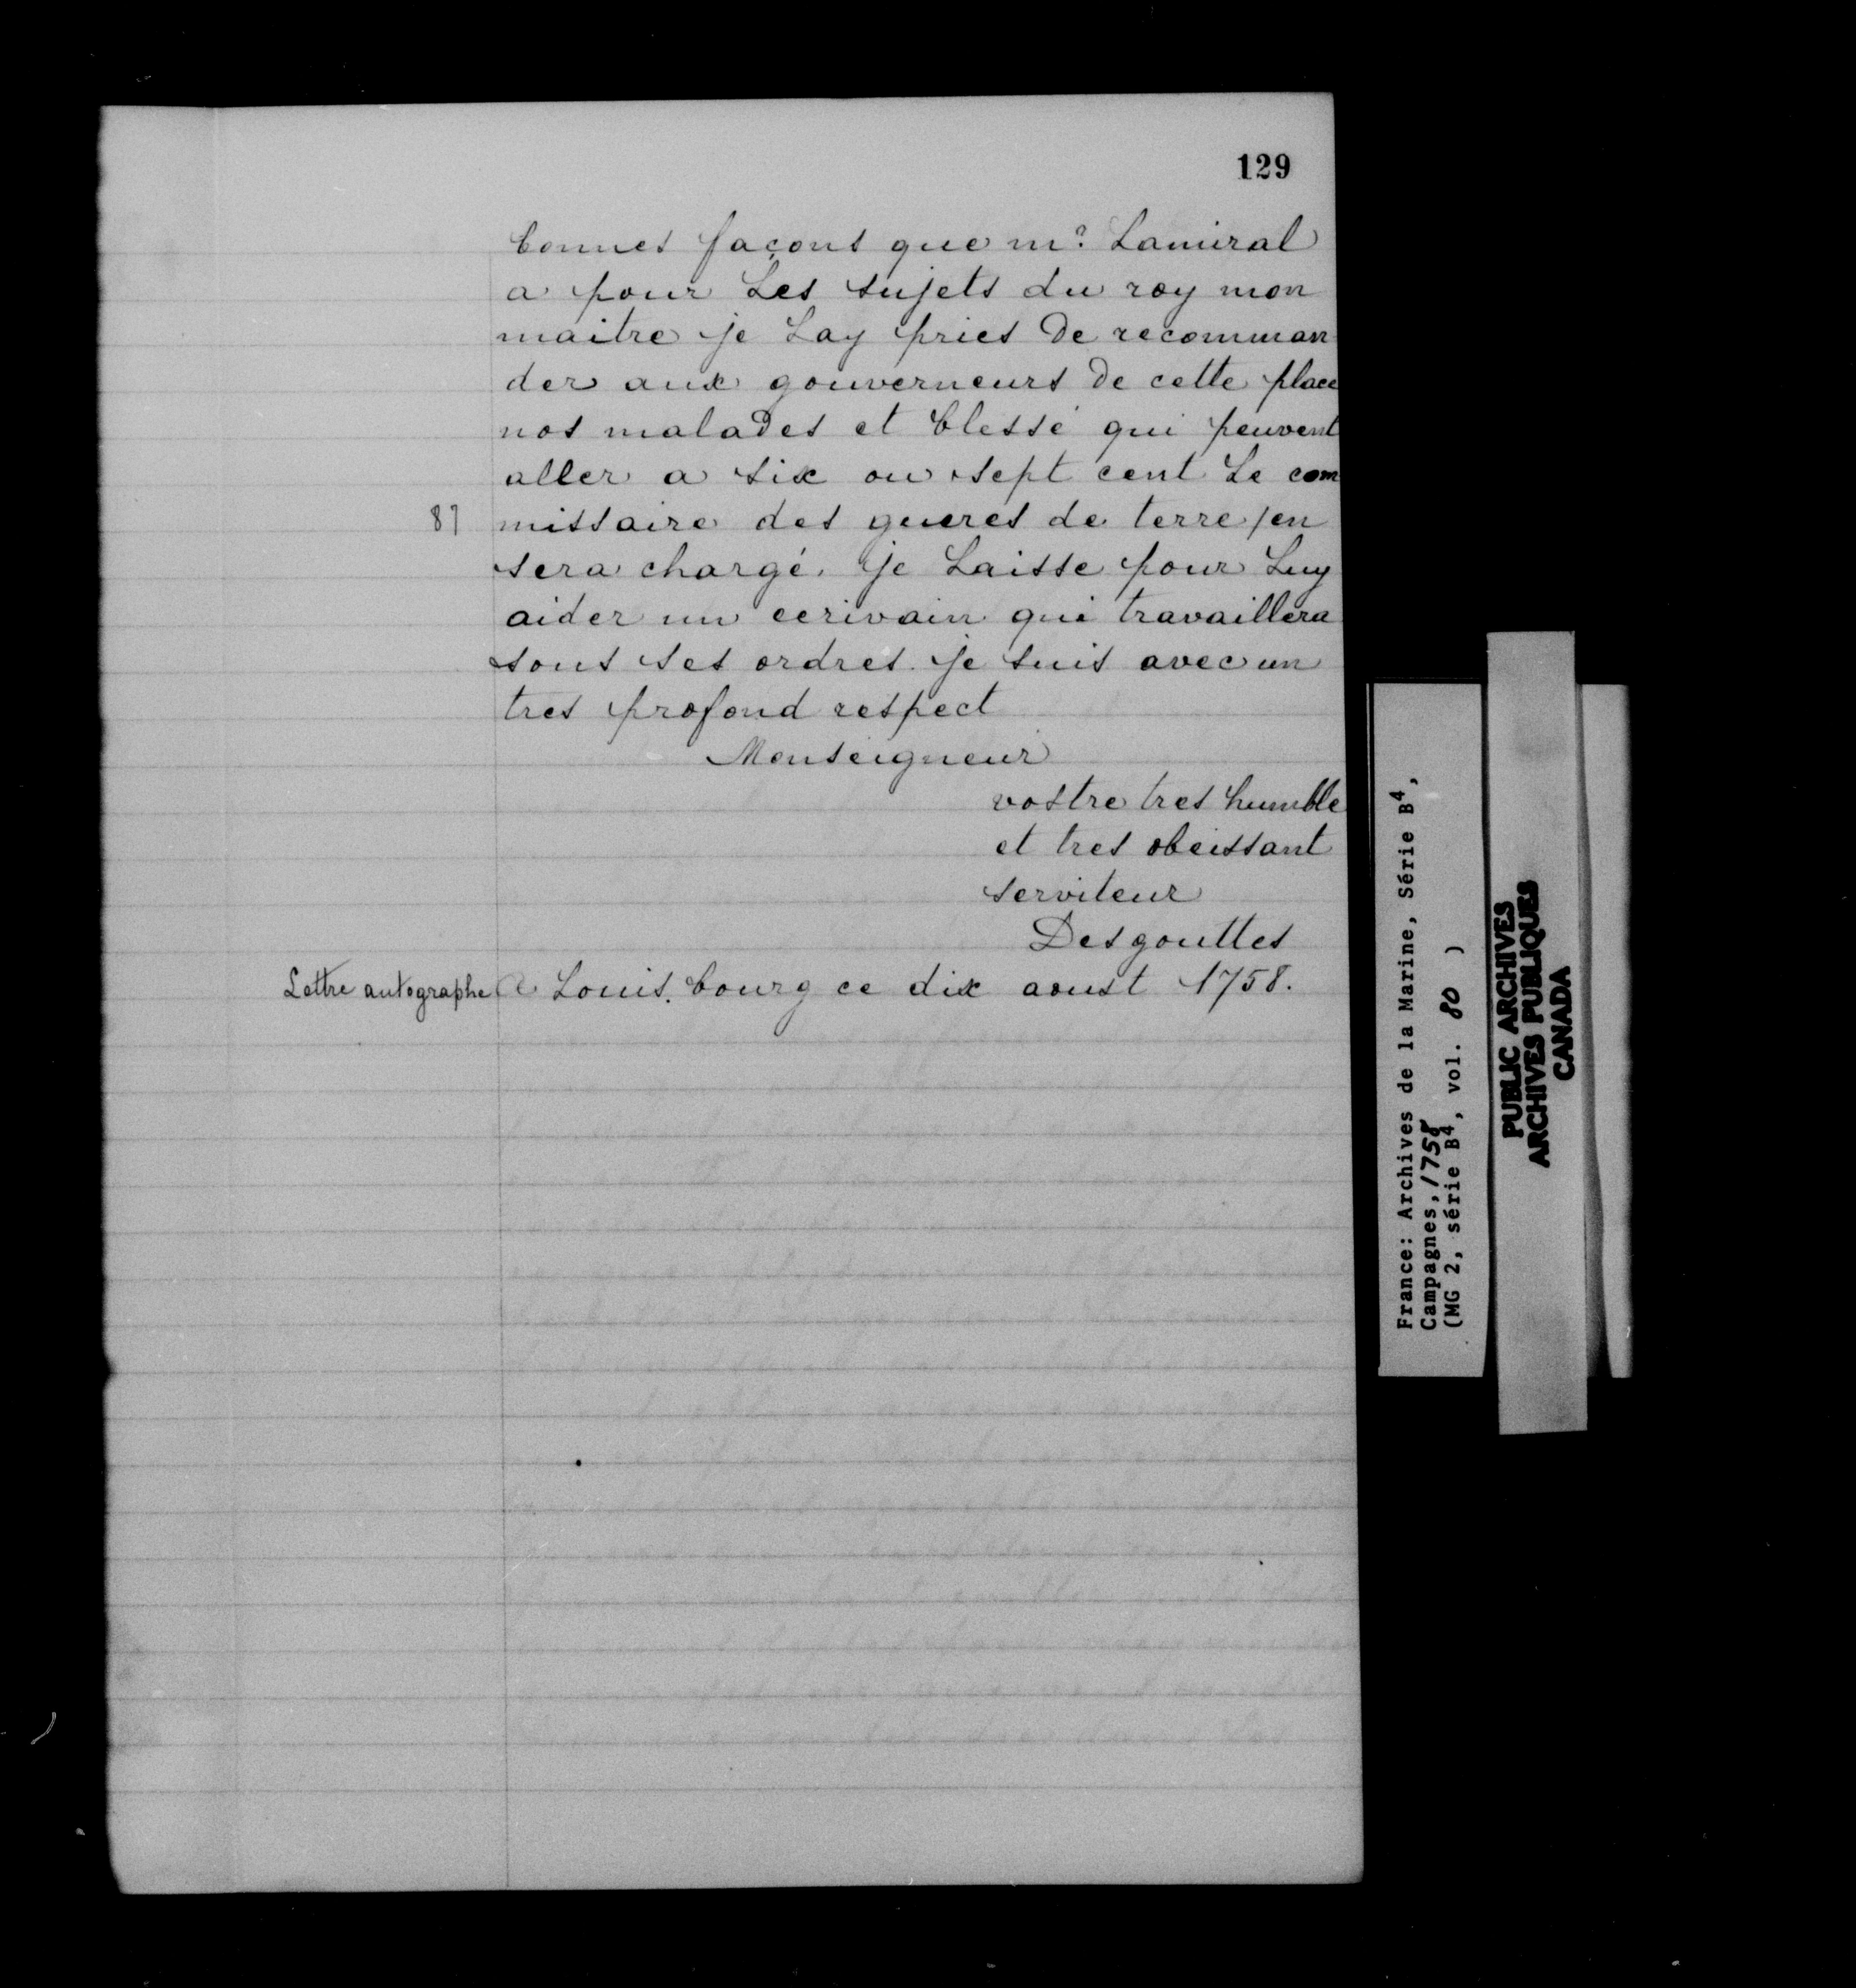 129
bonnes façons que mr. Lamiral
a pour Les sujets du roy mon
maitre je Lay pries de recomman
der aux gouverneurs de cette place
nos malades et blessé qui peuvent
aller a six ou sept cent Le com
87 missaire des gueres de terre /en
sera chargé. je Laisse pour Luy
aider un ecrivain qui travaillera
sous ses ordres. je suis avec un
tres profond respect
Monseigneur
vostre tres humble
et tres obeissant
serviteur
Desgouttes
Lettre autographe a Louis.bourg ce dix aoust 1758.
France: Archives de la Marine, Série B4,
Campagnes, 1758
(MG 2, série B4, vol. 80 )
PUBLIC ARCHIVES
ARCHIVES PUBLIQUES
CANADA